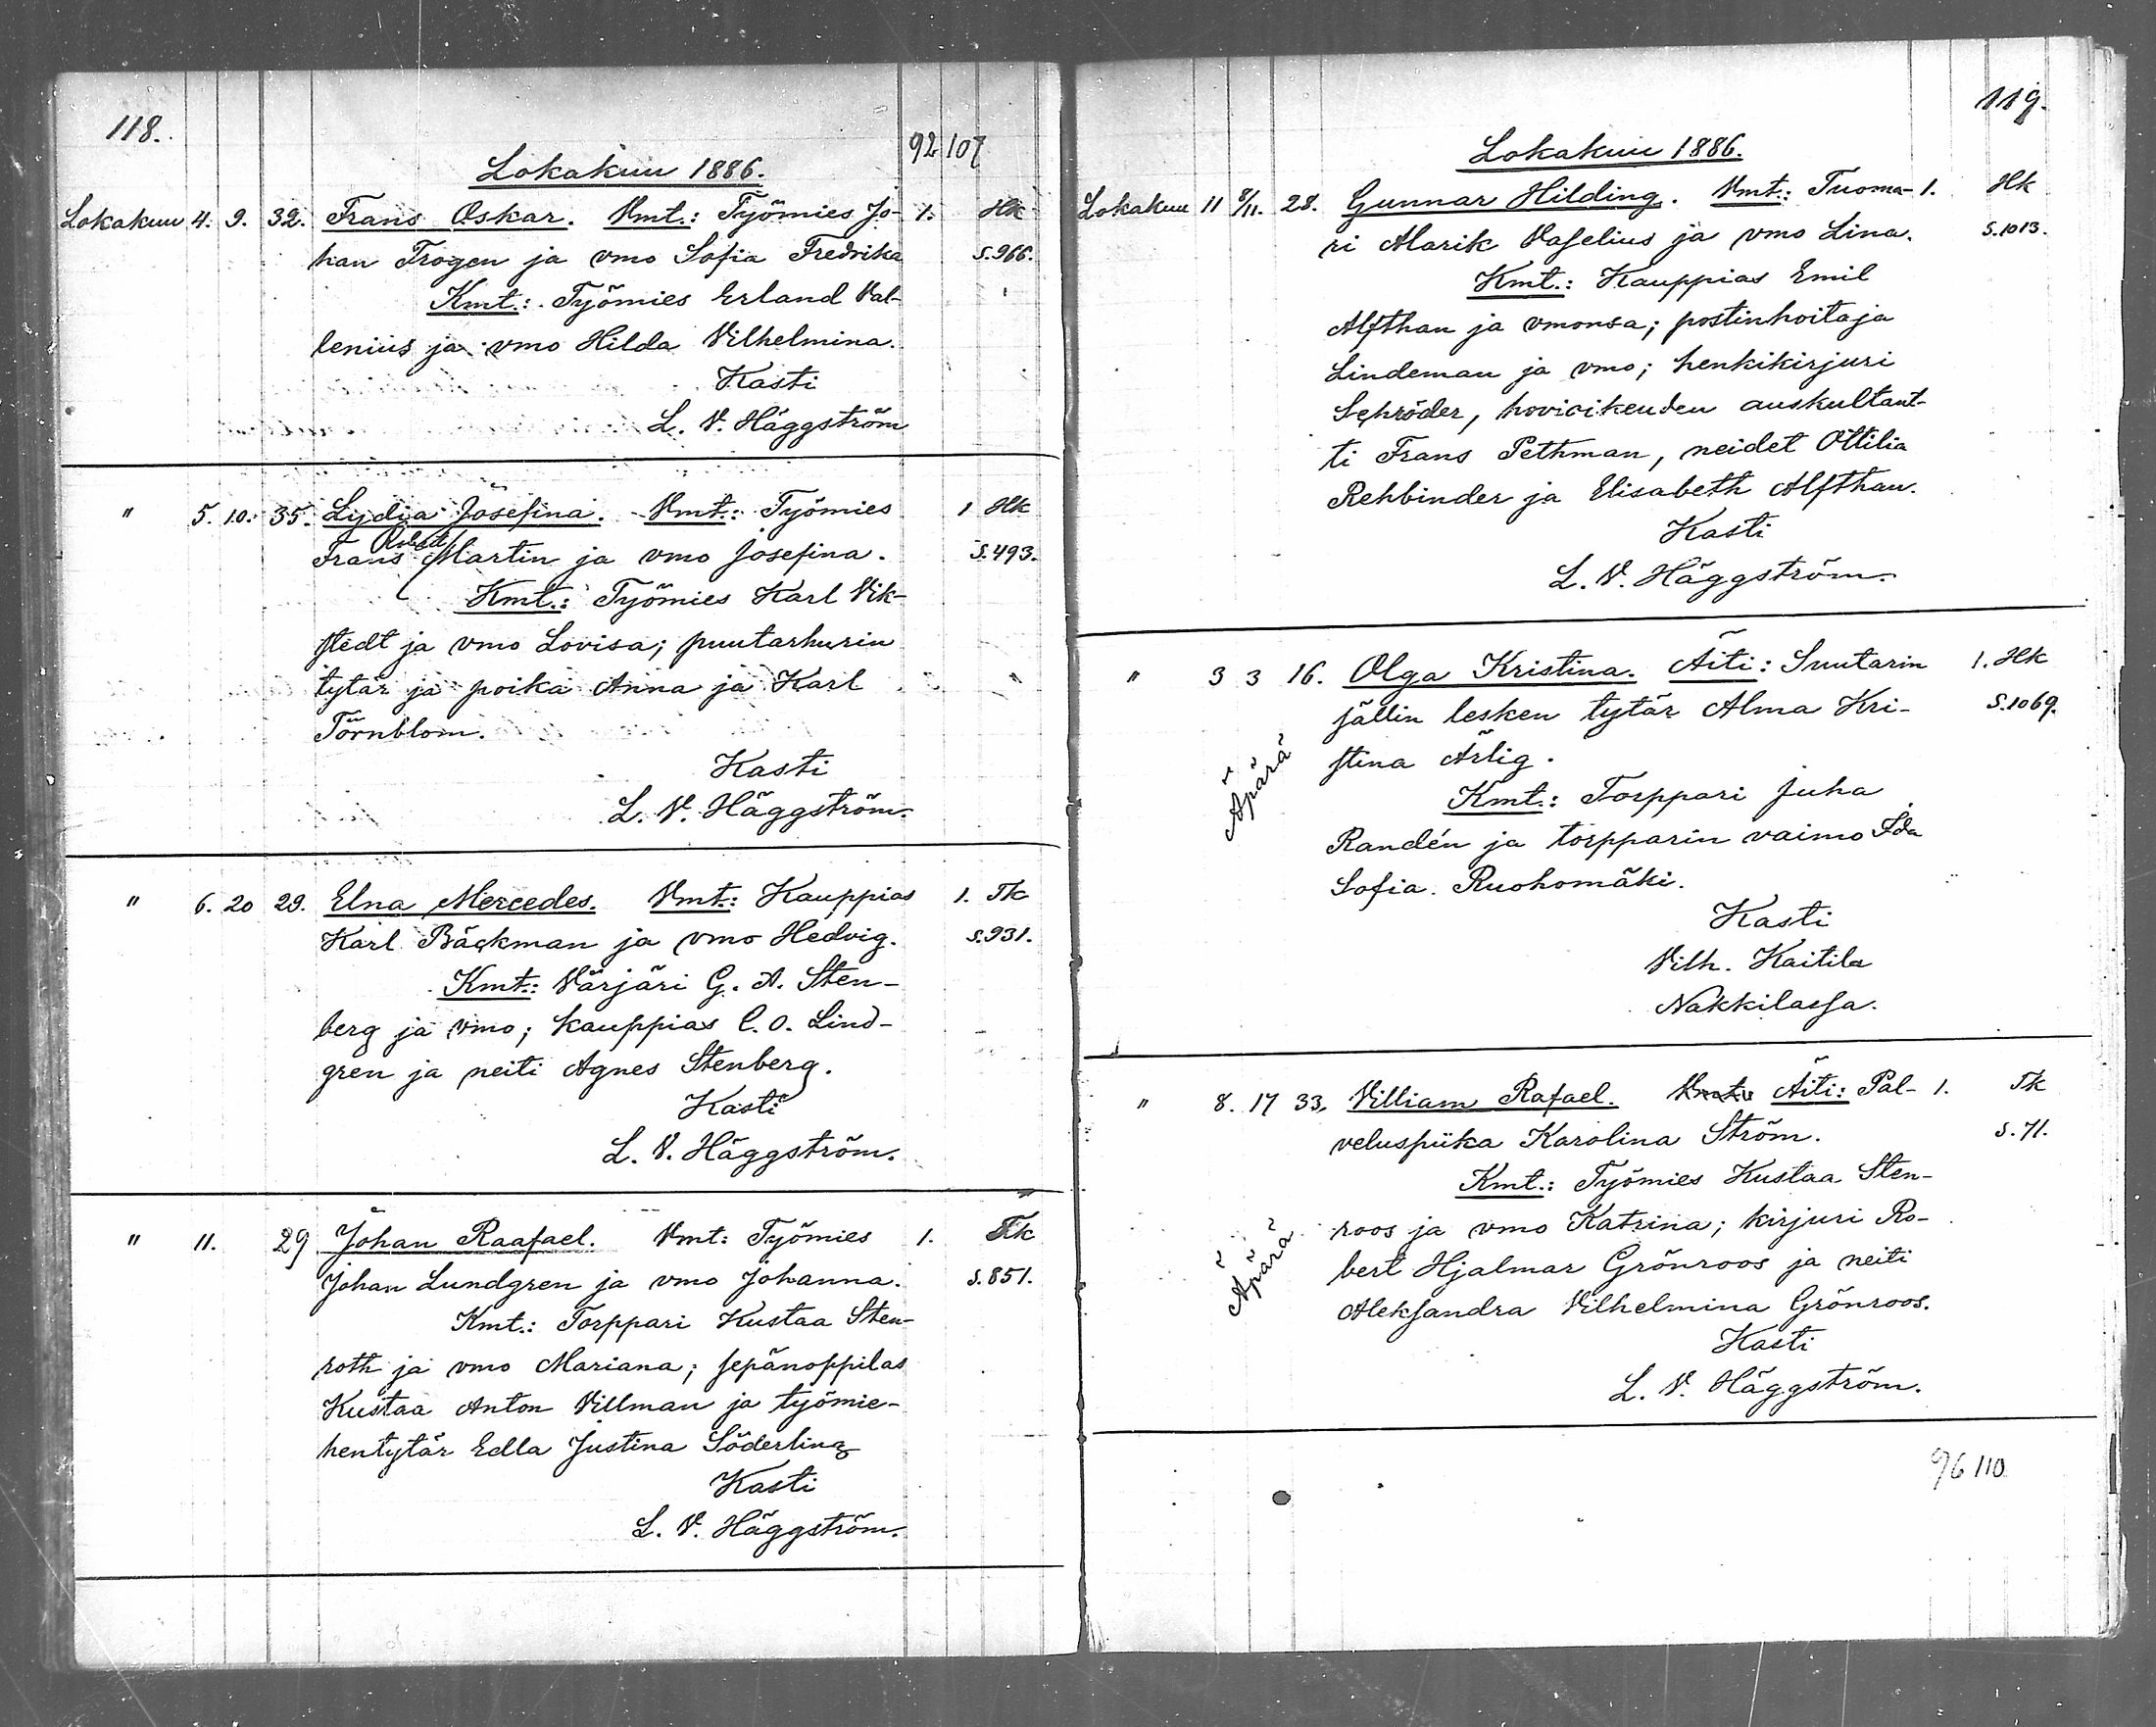 118.
92 107
Lokakuu 1886.
Lokakuu 4. 9. 32. Frans Oskar. Vmt.: Työmies Jo- 1. Hk
han Frogen ja vmo Sofia Fredrika S. 966.
Kmt.: Työmies Erland Val-
lenius ja vmo Hilda Vilhelmina.
Kasti
L. V. Häggström
" 5. 10. 35. Lydia Josefina. Vmt.: Työmies 1 Hk
Robert
Frans Martin ja vmo Josefina. S. 493.
Kmt.: Työmies Karl Vik-
stedt ja vmo Lovisa; puutarhurin
tytär ja poika Anna ja Karl
Törnblom.
Kasti
L. V. Häggström.
" 6. 20 29. Elna Mercedes. Vmt.: Kauppias 1. Tk
Karl Bäckman ja vmo Hedvig. S. 931.
Kmt.: Värjäri G. A. Sten-
berg ja vmo; kauppias C. O. Lind-
gren ja neiti Agnes Stenberg.
Kasti
L. V. Häggström.
" 11. 29 Johan Raafael. Vmt: Työmies 1. Tk
Johan Lundgren ja vmo Johanna. S. 851.
Kmt.: Torppari Kustaa Sten-
roth ja vmo Mariana; sepänoppilas
Kustaa Anton Villman ja työmie-
hentytär Edla Justina Söderling
Kasti
L. V. Häggström.
119.
Lokakuu 1886.
Lokakuu 11 8/11. 28. Gunnar Hilding. Vmt.: Tuoma- 1. Hk
ri Alarik Vaselius ja vmo Lina. S. 1013.
Kmt.: Kauppias Emil
Alfthan ja vmonsa; postinhoitaja
Lindeman ja vmo; henkikirjuri
Schröder, hovioikeuden auskultant-
ti Frans Pethman, neidet Ottilia
Rehbinder ja Elisabeth Alfthan.
Kasti
L. V. Häggström.
" 3 3 16. Olga Kristina. Äiti: Suutarin 1. Hk
sällin lesken tytär Alma Kri- S. 1069.
stina Ärlig.
Äpärä
Kmt.: Torppari Juha
Randén ja torpparin vaimo Ida
Sofia Ruohomäki.
Kasti
Vilh. Kaitila
Nakkilassa.
" 8. 17 33. Villiam Rafael. Vmt.: Äiti: Pal- 1. Tk
veluspiika Karolina Ström. S. 71.
Kmt.: Työmies Kustaa Sten-
roos ja vmo Katrina; kirjuri Ro-
Äpärä
bert Hjalmar Grönroos ja neiti
Aleksandra Vilhelmina Grönroos.
Kasti
L. V. Häggström.
96 110